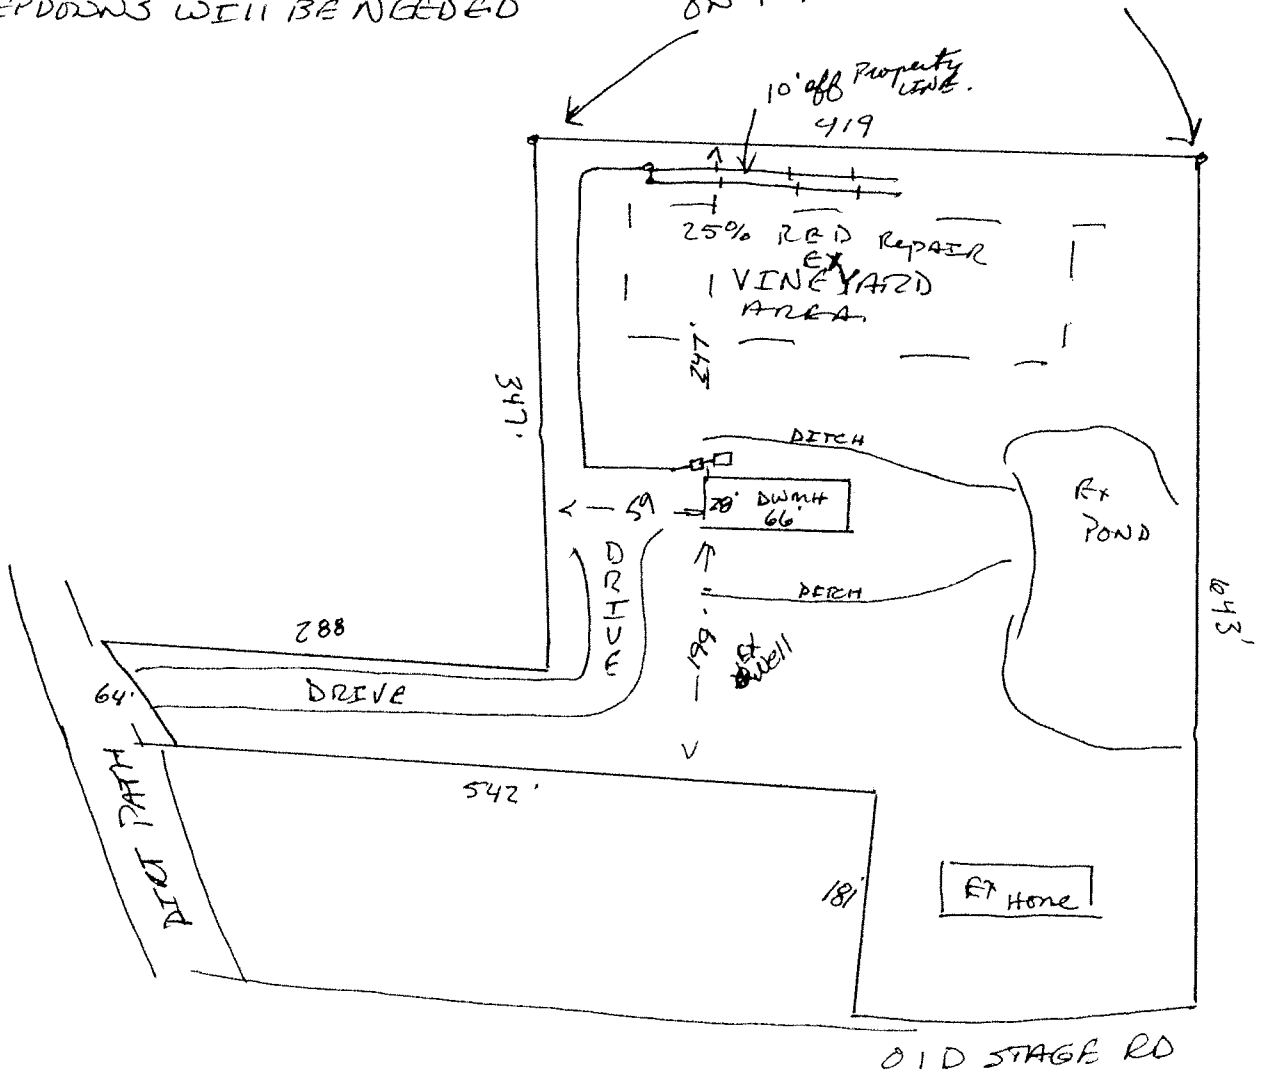 EPDOWNS WIll BE NEEDED
ON
10' off Property
LINE.
419
25% RED RepAIR
EX
VINEYARD
AREA.
247'
347'
DITCH
Ex
POND
59
28' DWMH
66'
DRIVE
DITCH
643'
288
199'
EX
Well
64'
DRIVE
542'
DIRT PATH
181'
EX Home
OlD STAGE RD